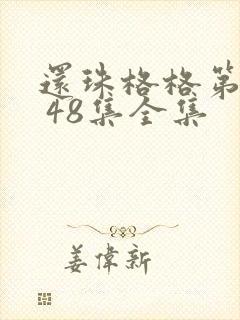 還珠格格第
48集全集
姜偉新